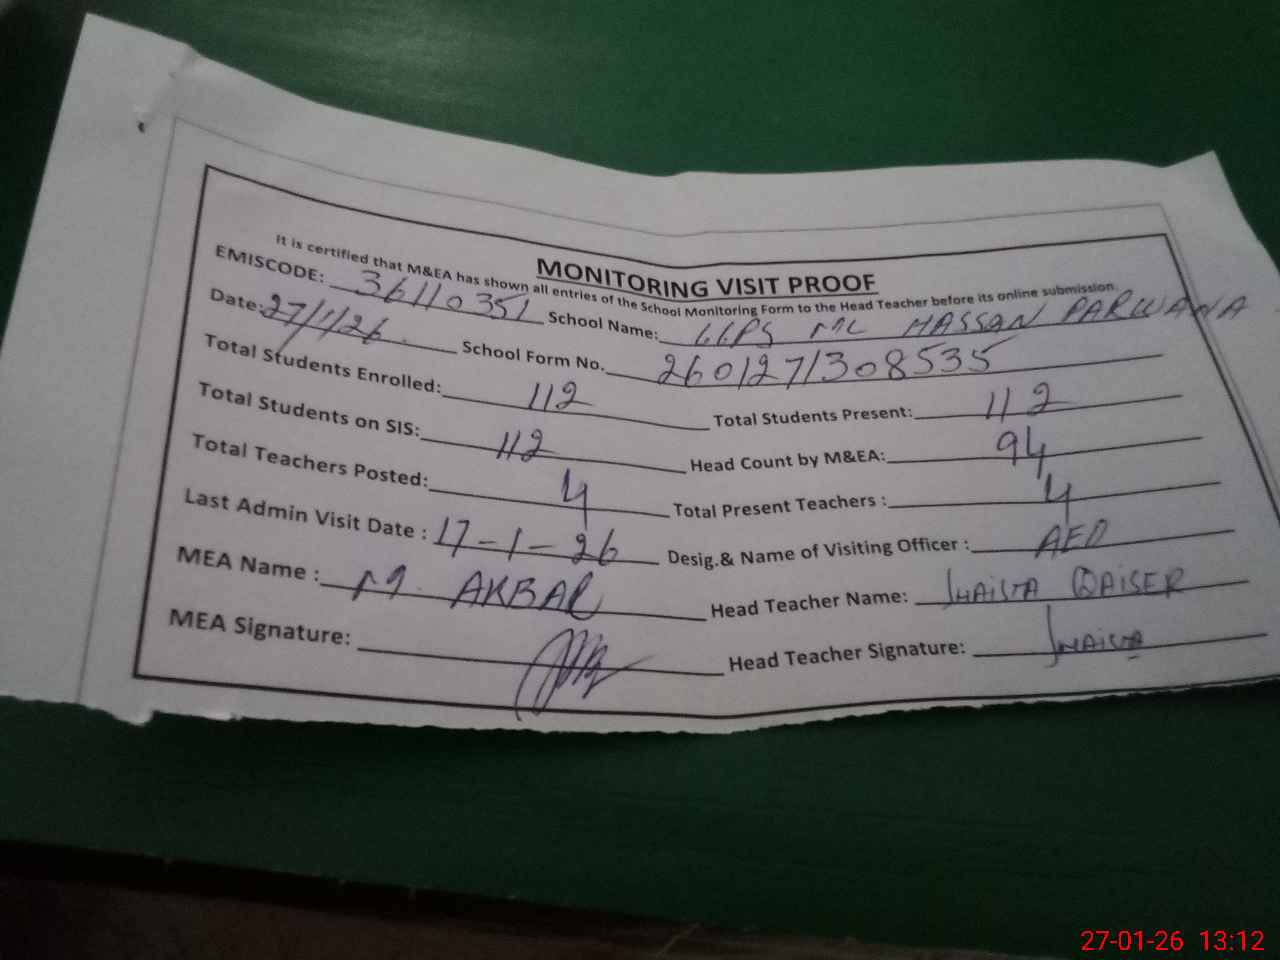 MONITORING VISIT PROOF
It is certified that M&EA has shown all entries of the School Monitoring Form to the Head Teacher before its online submission.
EMISCODE: 36110351 School Name: GGPS MC HASSAN PARWANA
Date: 27/1/26 School Form No. 2601271308535
Total Students Enrolled: 112 Total Students Present: 112
Total Students on SIS: 112 Head Count by M&EA: 94
Total Teachers Posted: 4 Total Present Teachers : 4
Last Admin Visit Date : 17-1-26 Desig.& Name of Visiting Officer : AEO
MEA Name : M. AKBAR Head Teacher Name: SHAISTA QAISER
MEA Signature: Head Teacher Signature: Shaista
27-01-26 13:12